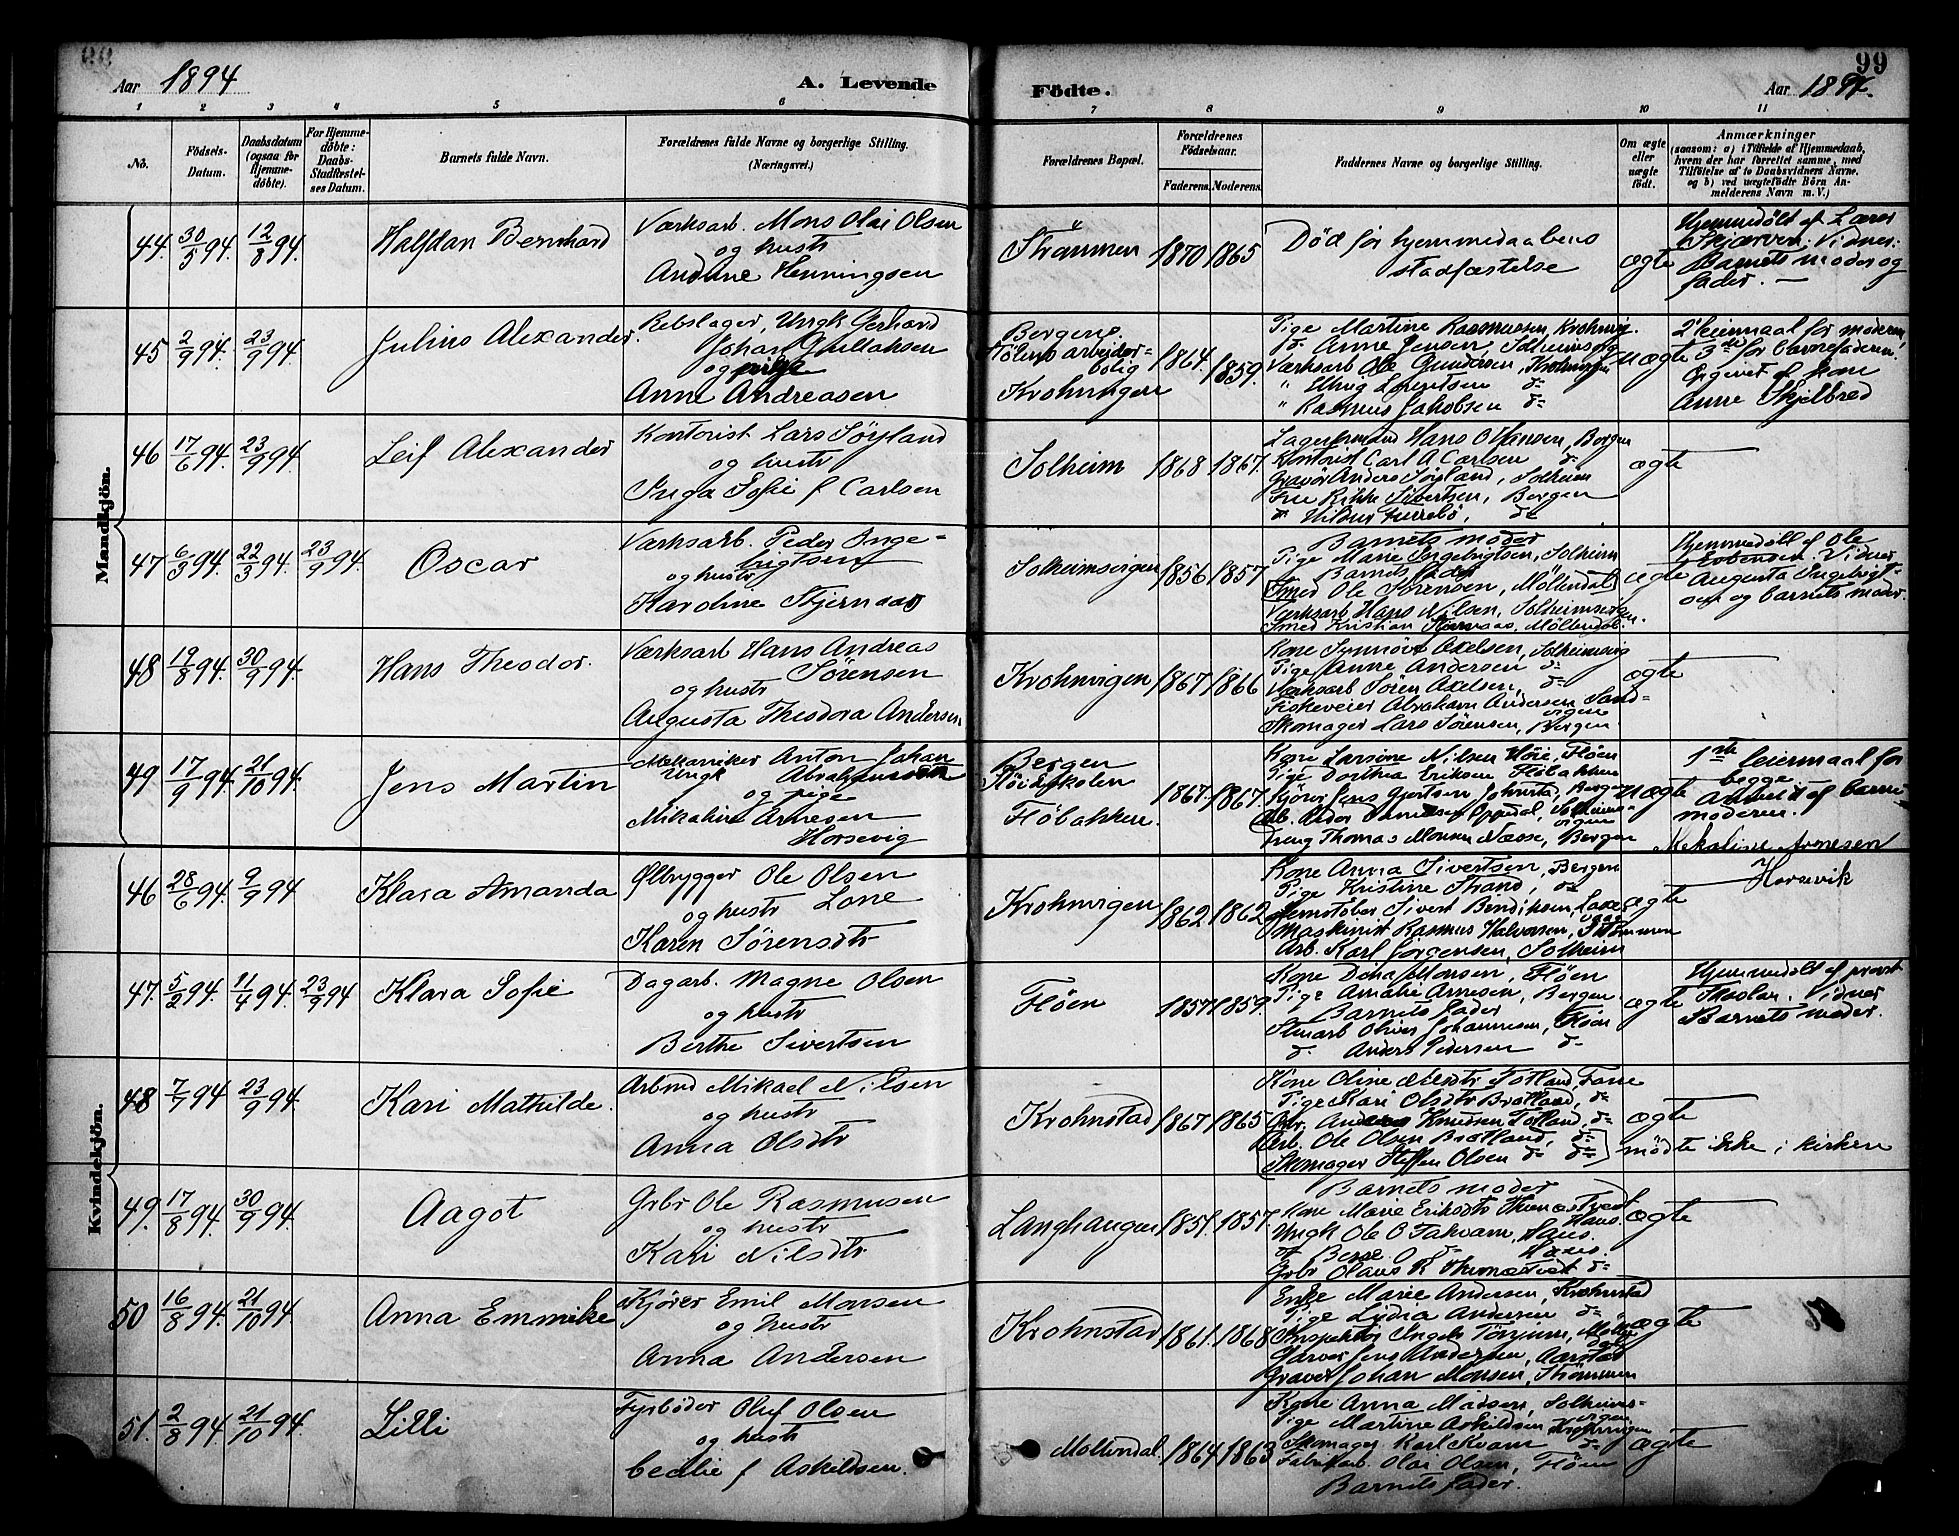 99
Aar 1894
A. Levende
Födte.
Aar 1894.
1 2 3 4 5 6 7 8 9 10 11
No.
Födsels-Datum.
Daabsdatum (ogsaa for Hjemmedöbte).
For Hjemmedöbte: Daabs-Stadfæstelses Datum.
Barnets fulde Navn.
Forældrenes fulde Navne og borgerlige Stilling. (Næringsvei.)
Forældrenes Bopæl.
Forældrenes Födselsaar.
Faderens. Moderens.
Faddernes Navne og borgerlige Stilling.
Om ægte eller uægte født.
Anmærkninger
(saasom: a) i Tilfælde af Hjemmedaab,
hvem der har forrettet samme, med
Tilföielse af to Daabsvidners Navne.
og b) ved uægtefödte Börn An-
melderens Navn m. V.)
Mandkjön.
44. 30/5 94. 12/8 94. Halfdan Bernhard
Værksarb. Mons Olai Olsen
og hustr
Henningsen
Strømmen 1870 1865
Død før hjemmedaabens
stadfæstelse
ægte
Hjemmedøbt af Lærer
Vidner:
Barnets moder og
fader. —
45 2/9 94. 23/9 94. Julius Alexander.
Rebslager, Ungk Gerhard
Johan
og pige
Anne Andreasen
Bergens
arbeider-
bolig
Krohnvigen
1864. 1859.
Pige Martine Rasmussen, Krohnvig.
do Anne Jensen Solheimsvig
Værksarb Ole Gundersen, Krohnvigen
" Lorentsen do
" Rasmus Jakobsen do
uægte
2det leiermaal for moderen,
3die for barnefaderen.
Opgivet af kone
Anne Skjelbred
46 17/6 94. 23/9 94 Leif Alexander
Kontorist Lars Søyland
og hustr
Inga Sofie f Carlsen
Solheim 1868 1867.
Hans O Hansen, Bergen
Kontorist Carl A Carlsen do
Gravør Anders Søyland, Solheim
Fru Rikke Sivertsen, Bergen
do
ægte
47 6/3 94. 22/3 94. 23/9 94. Oscar
Værksarb. Peder Inge-
brigtsen
og hustr
Karoline Stjernaas
Solheimsvigen 1856 1857
Barnets moder
Pige Marie Ingebrigtsen, Solheim
Barnets fader
Smed Ole Sørensen, Møllendal
Værksarb Hans Nilsen, Solheimsvigen.
Smed Kristian Stjernaas, Møllendal.
ægte
Hjemmedøbt af Ole
Vidner
Augusta Ingebrigt-
sen og barnets moder.
48 19/8 94. 30/9 94. Hans Theodor.
Værksarb Hans Andreas
Sørensen
og hustr
Augusta Theodora Andersen
Krohnvigen 1867 1866
Kone Synnøve Axelsen, Solheimsvig
Pige Anne Andersen do
Værksarb Søren Axelsen, do
Fiskeveier Abraham Andersen Sand-
vigen
Skomager Lars Sørensen, Bergen.
ægte
49. 17/9 94. 21/10 94. Jens Martin
Mekaniker Anton Johan
Ungk
og pige
Arnesen
Horsevig
Bergen
Fløibakken.
1867. 1867.
Kone Larsine Nilsen Høie, Fløen
Pige Dorthea Eriksen Fløibakken
Kjører Jens Gjertsen Bergen
Oppedal, Solheims-
vigen
Dreng Thomas Monsen Næsse, Bergen
uægte
1ste leiermaal for
begge
Anmeldt af barne-
moderen.
Arnesen
Horsevik
Kvindekjön.
46 28/6 94. 9/9 94 Klara Amanda
Ølbrygger Ole Olsen
Lone
og hustr
Karen Sørensdtr
Krohnvigen 1862 1862
Kone Anna Sivertsen, Bergen
Pige Kristine Strand, do
Jernstøber Sivert Bendiksen,
Maskinist Rasmus Halvorsen, Strømmen
Arb. Karl Jørgensen, Solheim
ægte
47. 5/2 94. 11/4 94. 23/9 94 Klara Sofie
Dagarb. Magne Olsen
og hustr
Berthe Sivertsen
Fløen 1857 1859.
Kone Dina Monsen, Fløen
Pige Amalie Arnesen, Bergen.
Barnets fader
Stuarb Oliver Johannesen, Fløen
do. Anders Pedersen do
ægte
Hjemmedøbt af provst
Vidner
Barnets moder.
48 7/7 94 23/9 94. Kari Mathilde.
Arbmd Mikael Nilsen
og hustr
Anna Olsdtr
Krohnstad 1867 1865
Kone Oline Nilsdtr Totland, Fane
Pige Kari Olsdtr Bratland, do
Arb. Anders Knudsen Totland, do
Arb. Ole Olsen Bratland, do
Skomager Steffen Olsen do do
ægte
mødte ikke i kirken
49. 17/8 94. 30/9 94. Aagot
Gbr Ole Rasmusen
og hustr
Kari Nilsdtr
Langhaugen 1851. 1857.
Barnets moder
Kone Marie Eriksdtr
Haus.
Ungk Ole O Takvam, Haus.
do Berge O do Haus.
Grbr Olaus R do
ægte
50 16/8 94. 21/10 94. Anna Emmike
Kjører Emil Monsen
og hustr
Anna Andersen
Krohnstad 1861. 1868
Enke Marie Andersen Krohnstad
Pige Lydia Andersen do
Inspektør
Garver Jens Andersen, Aarstad
Graver Johan Monsen, Strømmen
ægte
51. 2/8 94. 21/10 94. Lilli
Fyrbøder Oluf Olsen
og hustr
Cecilie f Askildsen.
Møllendal. 1864 1863
Kone Anna Madsen, Solheims-
vigen
Pige Martine Askildsen Krohnvigen
Skomager Karl Kvam do
Fabrikarb. Olai Olsen, Fløen
Barnets fader.
ægte